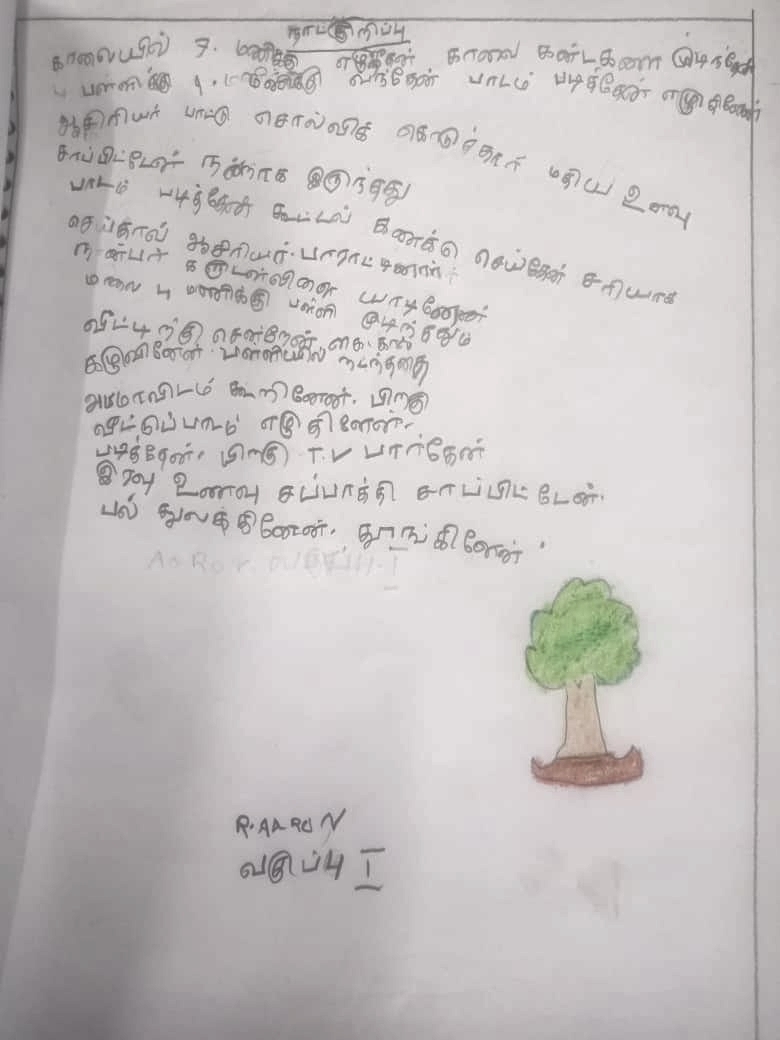 நாட்குறிப்பு
காலையில் 7. மணிக்கு எழுந்தேன் காலை கன்டகளை முடிந்தேன்
பள்ளிக்கு 9. மணிக்கு வந்தேன் பாடம் படித்தேன் எழுதினேன்
ஆசிரியர் பாட்டு சொல்லிக் கொடுத்தார் மதிய உணவு
சாப்பிட்டேன் நன்றாக இருந்தது
பாடம் படித்தேன் கூட்டல் கணக்கு செய்தேன் சரியாக
செய்தால் ஆசிரியர். பாராட்டினார்.
நன்பர்
மாலை 4 மணிக்கு பள்ளி முடிந்ததும்
வீட்டிற்கு சென்றேன் கை. கால்
கழுவினேன். பள்ளியில் நடந்ததை
அம்மாவிடம் கூறினேன். பிறகு
வீட்டுப்பாடம் எழுதினேன்.
படித்தேன். பிறகு T.V பார்தேன்
இரவு உணவு சப்பாத்தி சாப்பிட்டேன்.
பல் துலக்கினேன். தூங்கினேன்.
R.AARON
வகுப்பு I